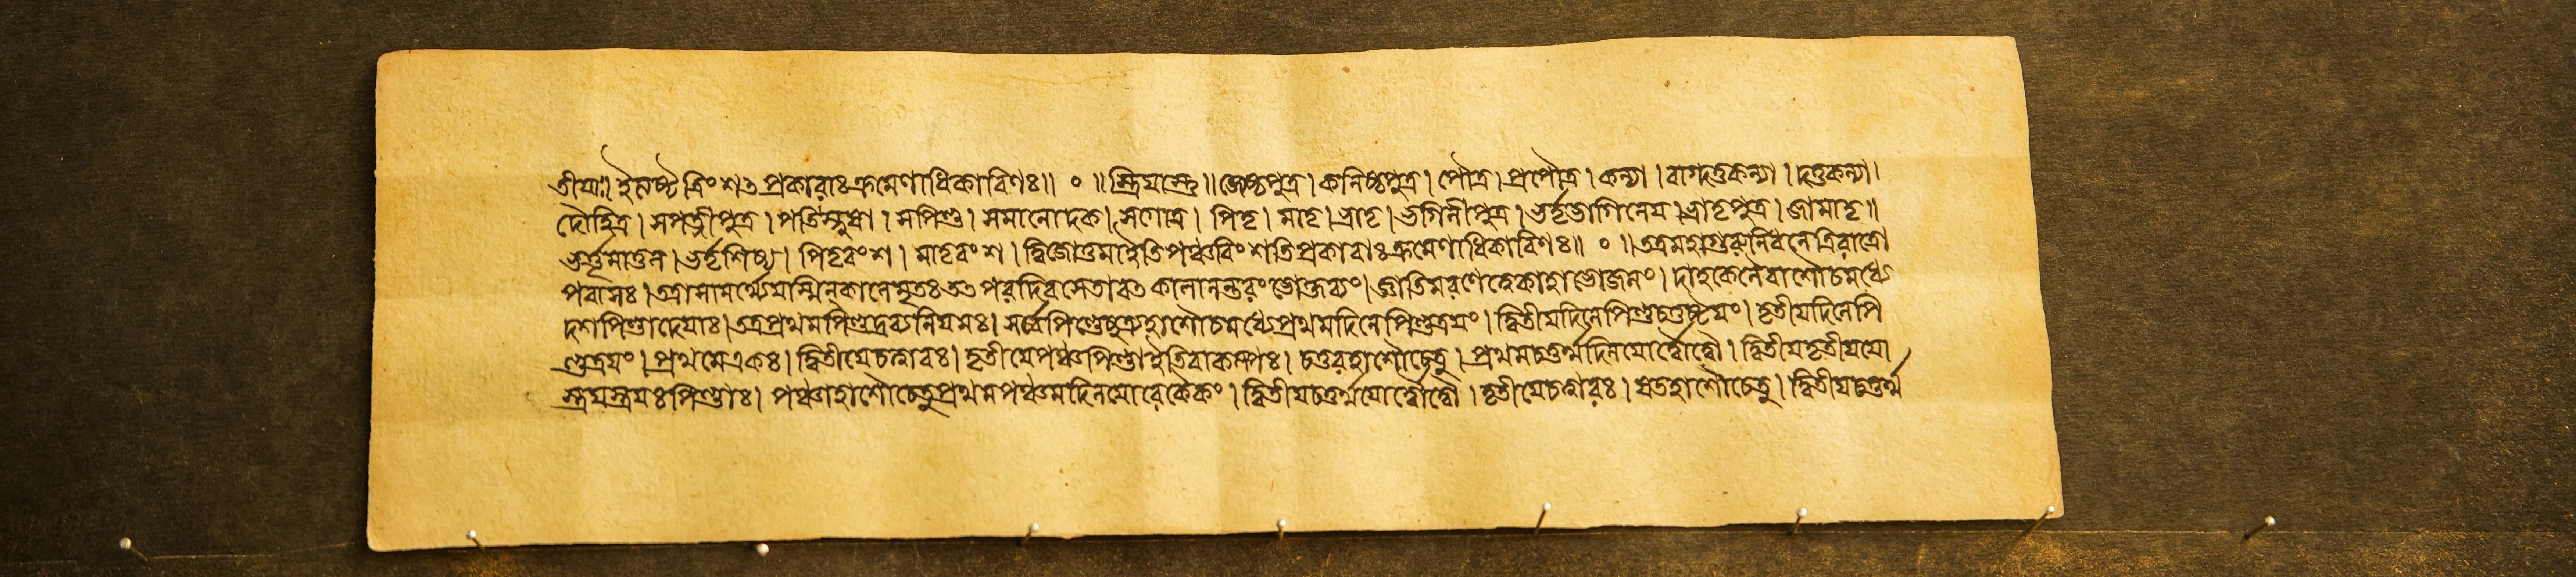 তীয়াঃ॥ ইত্যষ্টত্রিংশৎ প্রকারাঃ ক্রমেণাধিকারিণঃ॥ ० ॥ স্ত্রিয়াস্তু॥ জ্যেষ্ঠপুত্র। কনিষ্ঠপুত্র। পৌত্র। প্রপৌত্র। কন্যা। বাগদত্তকন্যা। দত্তকন্যা।
দৌহিত্র। সপত্নীপুত্র। পতি। স্নুষা। সপিণ্ড। সমানোদক। সগোত্র। পিতৃ। মাতৃ। ভ্রাতৃ। ভগিনীপুত্র। ভর্ত্তৃভাগিনেয়। ভ্রাতৃপুত্র। জামাতৃ॥
ভর্ত্তৃমাতুল। ভর্ত্তৃশিষ্য। পিতৃবংশ। মাতৃবংশ। দ্বিজোত্তমাইতিপঞ্চবিংশতিপ্রকারাঃ ক্রমেণাধিকারিণঃ॥ ० ॥ অত্রমহাগুরুনিধনেত্রিরাত্রো
পবাসঃ। অত্রাসামর্থ্যেযস্মিনকালেমৃতঃ তৎ পরদিবসেতাবৎ কালানন্তরং ভোক্তব্যং। জ্ঞাতিমরণেত্বেকাহাভোজনং। দাহকেনৈবাশৌচমধ্যে
দশপিণ্ডাদেয়াঃ। অত্রপ্রথমপিণ্ডদ্রব্যনিয়মঃ। সর্ব্বেপিণ্ডেষুত্র্যহাশৌচমধ্যেপ্রথমদিনেপিণ্ডত্রয়ং। দ্বিতীয়দিনেপিণ্ডচতুষ্টয়ং। তৃতীয়দিনেপি
ণ্ডত্রয়ং। প্রথমেএকঃ। দ্বিতীয়েচত্বারঃ। তৃতীয়েপঞ্চপিণ্ডাইতিবাকল্পঃ। চতুরহাশৌচেতু। প্রথমচতুর্থদিনয়োর্দ্বৌদ্বৌ। দ্বিতীয়তৃতীয়য়ো
স্ত্রয়স্ত্রয়ঃপিণ্ডাঃ। পঞ্চাহাশৌচেতুপ্রথমপঞ্চমদিনয়োরেকৈকং। দ্বিতীয়চতুর্থয়োর্দ্বৌদ্বৌ। তৃতীয়েচত্বারঃ। ষডহাশৌচেতু। দ্বিতীয়চতুর্থ